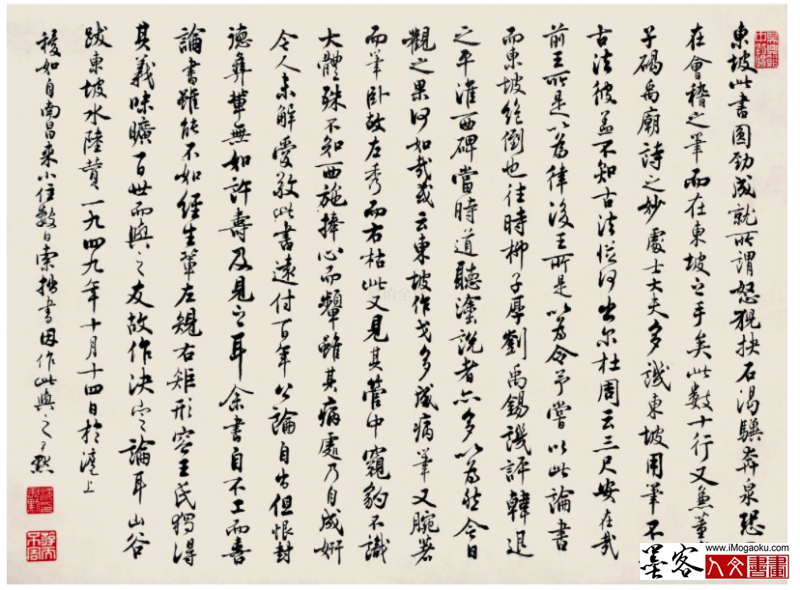 東坡此書圓勁成就所謂怒猊抉石渴驥奔泉恐
在會稽之筆而在東坡之手矣此數十行又兼董
子碣禹廟詩之妙處士大夫多譏東坡用筆不
古法彼蓋不知古法從何出尔杜周云三尺安在哉
前王所是以為律後王所是以為令予嘗以此論書
而東坡絕倒也往時柳子厚劉禹錫譏評韓退
之平淮西碑當時道聽塗說者亦多以為然今日
觀之果何如哉或云東坡作戈多成病筆又腕著
而筆臥故左秀而右枯此又見其管中窺豹不識
大體殊不知西施捧心而顰雖其病處乃自成妍
今人未解愛敬此書遠付百年公論自出但恨封
德彝輩無如許壽及見之耳余書自不工而喜
論書雖能不如經生輩左規右矩形容王氏獨得
其義味曠百世而與之友故作決定論耳山谷
跋東坡水陸贊一九四九年十月十四日於滬上
稜如自南昌來小住數日索拙書因作此與之尹默
www.iMogaoku.com
墨客人文書畫